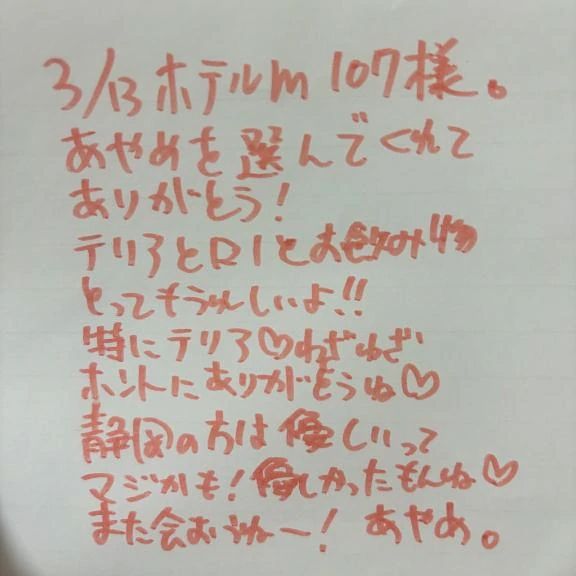 3/13 ホテルm 107様。
あやめを選んでくれて
ありがとう!
テリアとR1とお飲み物
とってもうれしいよ!!
特にテリア♡わざわざ
ホントにありがとうね♡
静岡の方は優しいって
マジかも!優しかったもんね♡
また会おうねー! あやめ。